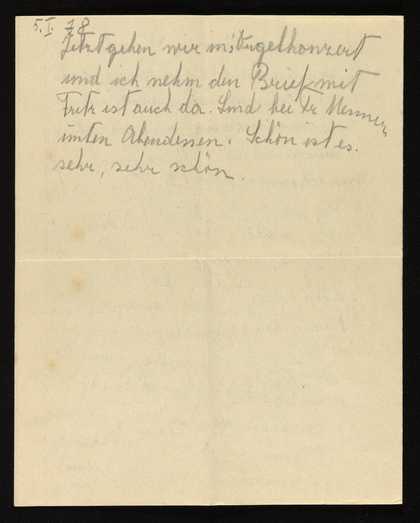 5.I. 28
Jetzt gehen wir ins Orgelkonzert
und ich nehm den Brief mit
Fritz ist auch da. Sind bei
unten Abendessen. Schön ist es.
sehr, sehr schön.